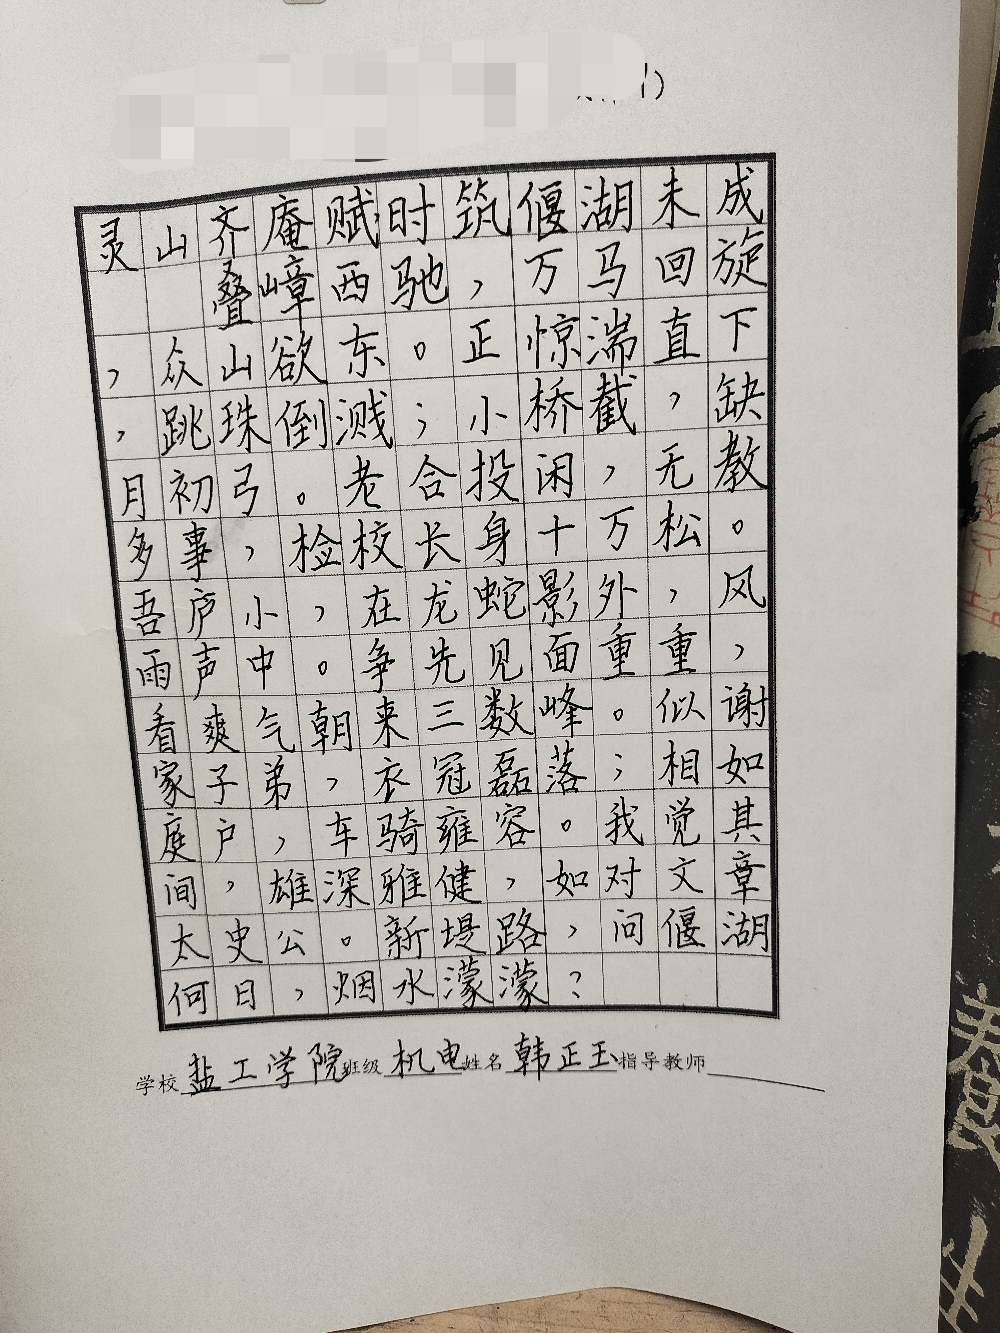 灵山齐庵赋时筑偃湖未成
叠嶂西驰，万马回旋
，众山欲东。正惊湍直下
，跳珠倒溅；小桥截，缺
月初弓。老合投闲，无教
多事，检校长身十万松。
吾庐小，在龙蛇影外，风
雨声中。争先见面重重，
看爽气朝来三数峰。似谢
家子弟，衣冠磊落；相如
庭户，车骑雍容。我觉其
间，雄深雅健，如对文章
太史公。新堤路，问偃湖
何日，烟水濛濛？
学校 盐工学院 班级 机电 姓名 韩正玉 指导教师